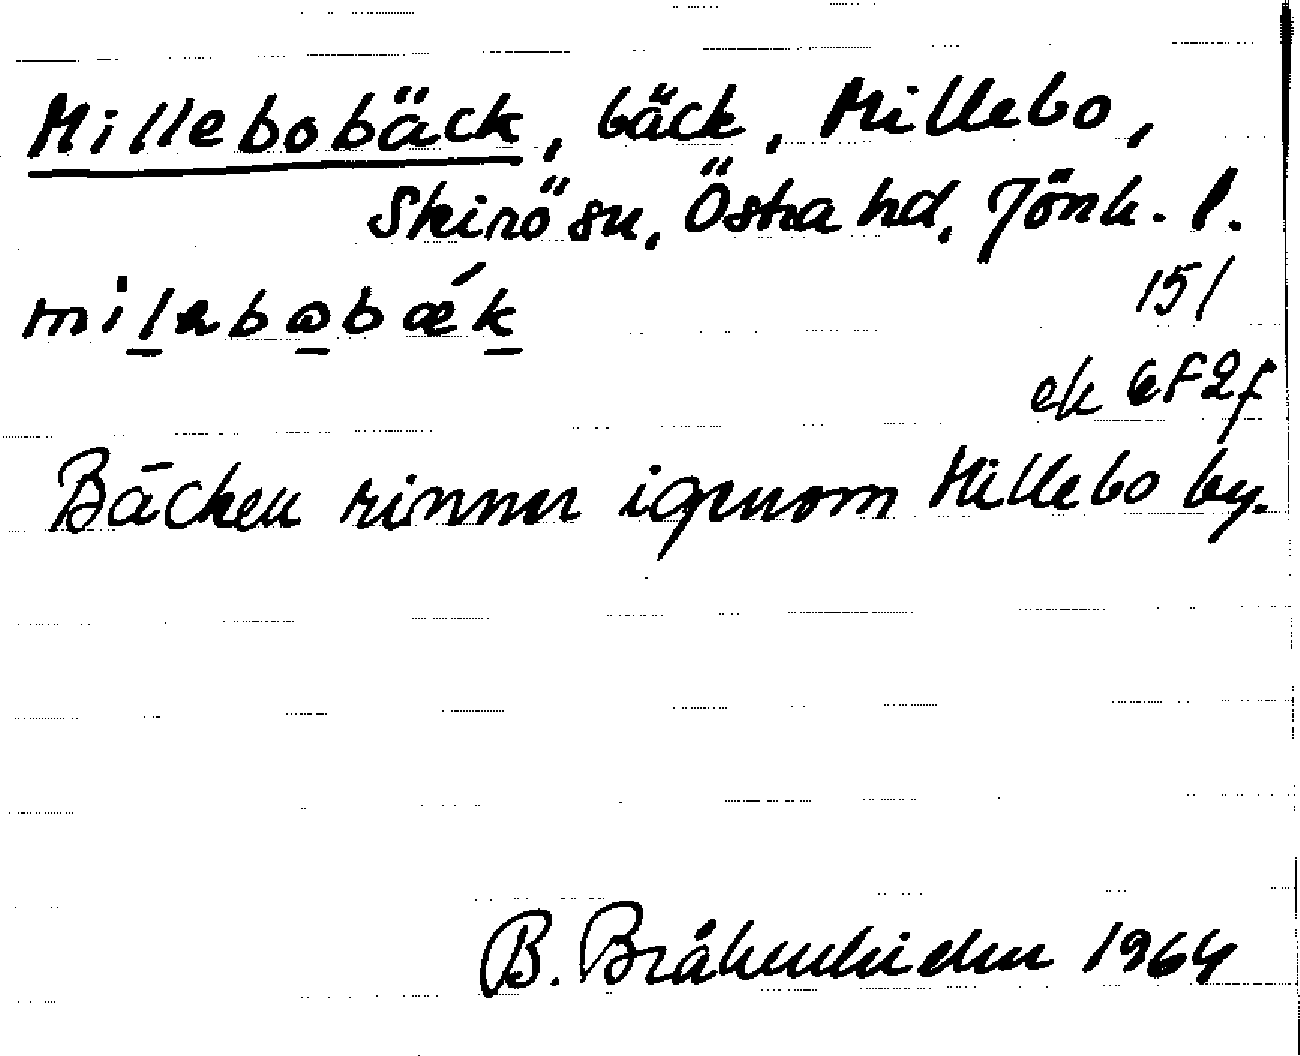 Millebobäck, bäck, Millebo,
Skirö sn, Östra hd, Jönk. l.
milabobæ´k
151
ek 6F2f
Bäcken rinner igenom Millebo by.
B. Bråkenhielm 1964